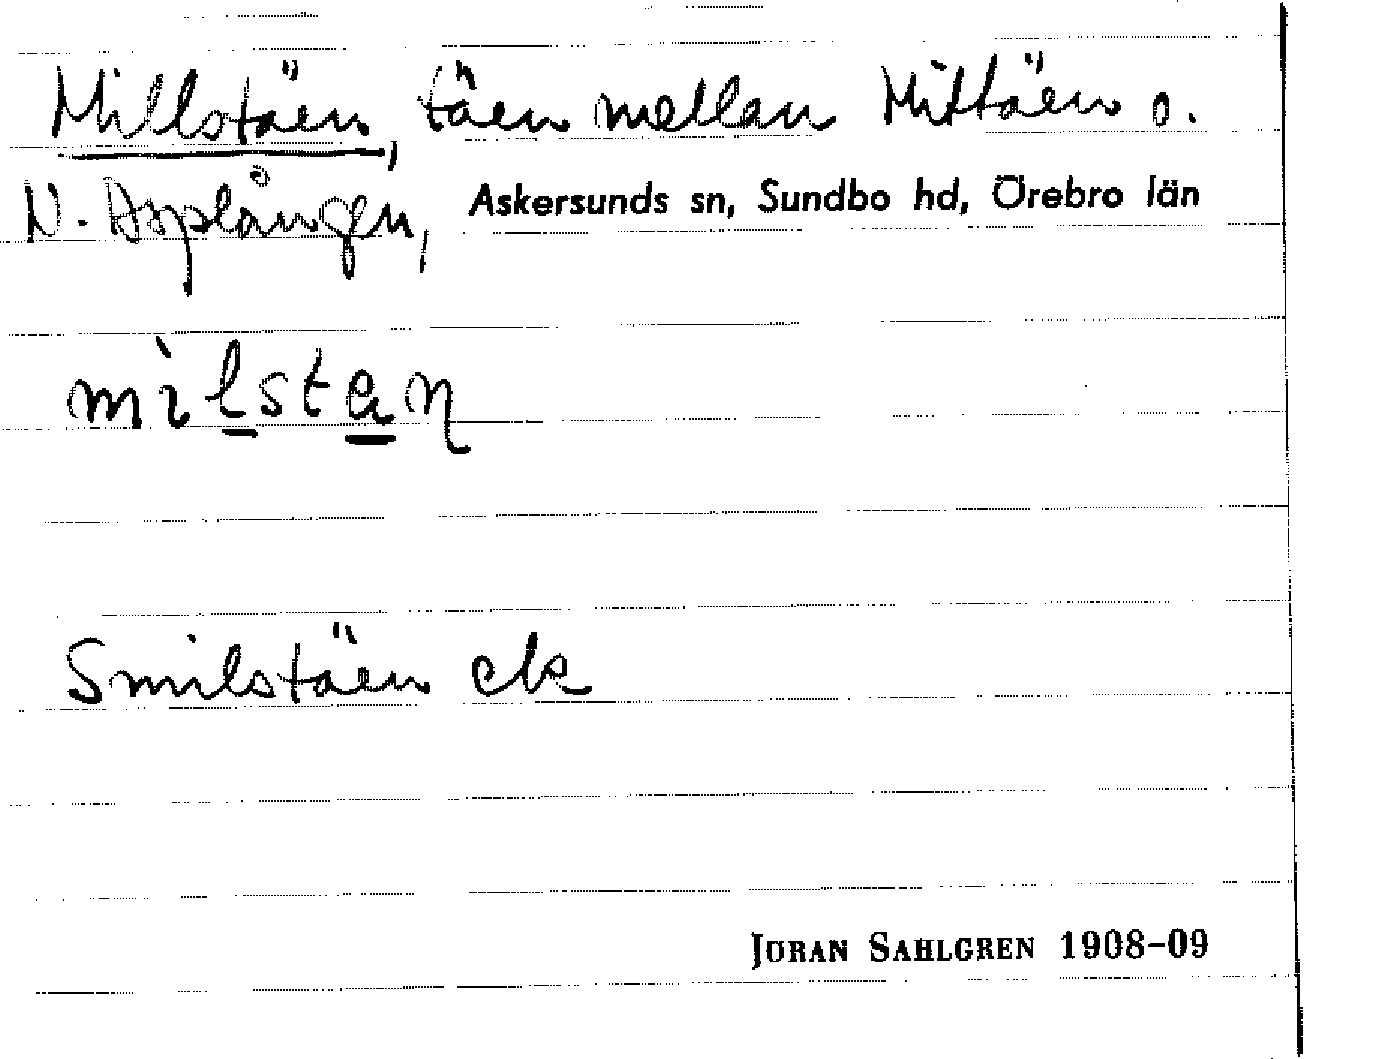 Millstäen, täen mellan Mittäen o.
N. Asplången, Askersunds sn, Sundbo hd, Örebro län
Smilstäen ek
JÖRAN SAHLGREN 1908–09